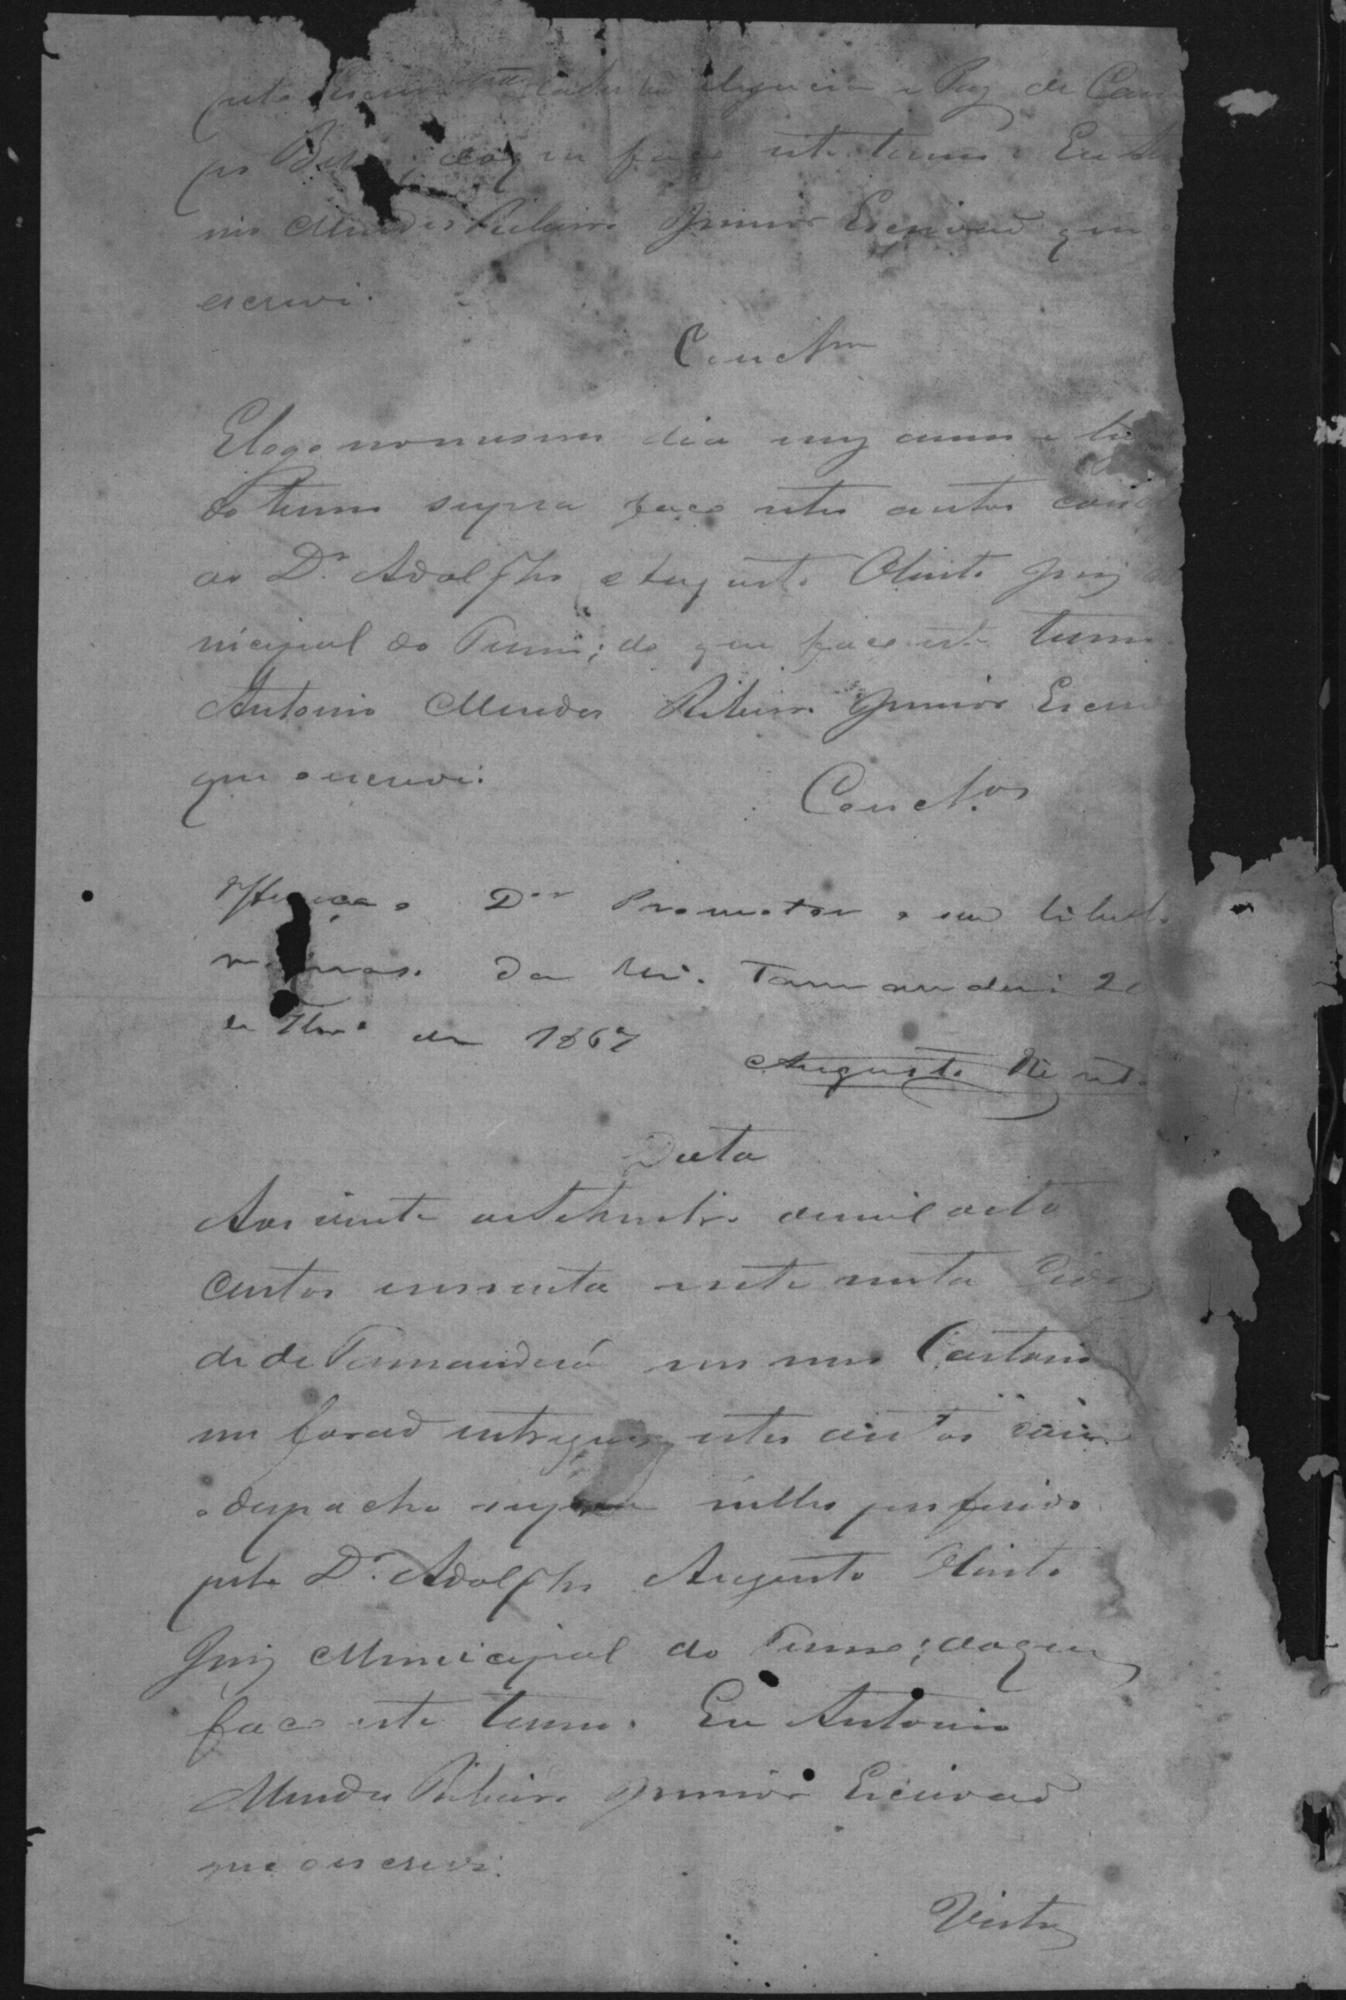 pelo Escrivão da Freguesia e Paz de Cam
po Bello; do que faço este termo. Eu Anto
nio Mendes Ribeiro Junior Escrivaõ que
escrevi.
Concl.am
E logo no mesmo dia mez anno e
do termo supra faço estes autos concl
ao Dr. Adolpho Augusto Olinto Juiz
nicipal do Termo; do que faço este termo
Antonio Mendes Ribeiro Junior Escri
que o escrevi.
Concl.os
Offereça o Dor Promotor o seu libello
da lei. Tamanduá 20
de 7br.o de 1867
Augusto Olinto
Data
Aos vinte de Setembro de mil oito
centos sessenta e sete nesta Cida
de de Tamanduá em meu Cartorio
me foraõ entregues estes autos com
o despacho supra nelles proferido
pelo Dr. Adolpho Augusto Olinto
Juiz Municipal do Termo; do que
faço este termo. Eu Antonio
Mendes Ribeiro Junior Escrivaõ
que o escrevi.
Vista